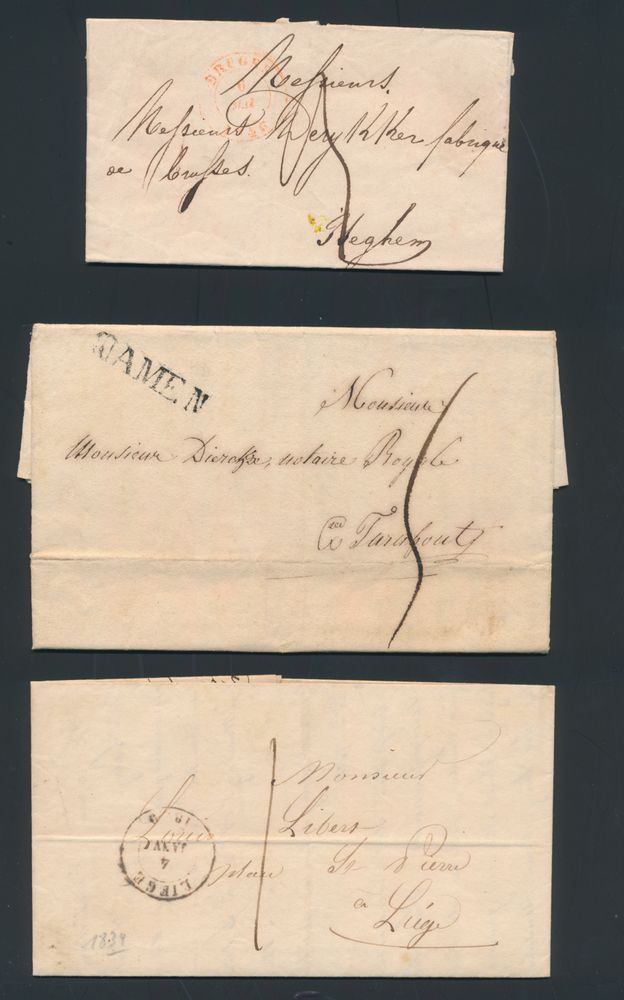 BRUGES
6
Messieurs
Messieurs Derykker fabrique
de brosses.
Iseghem
DAMEN
Monsieur
Monsieur Diercxse, notaire Royale
à Turnhout
Monsieur
Libert
St Pierre
à Liége
LIEGE
4
JANV
1834